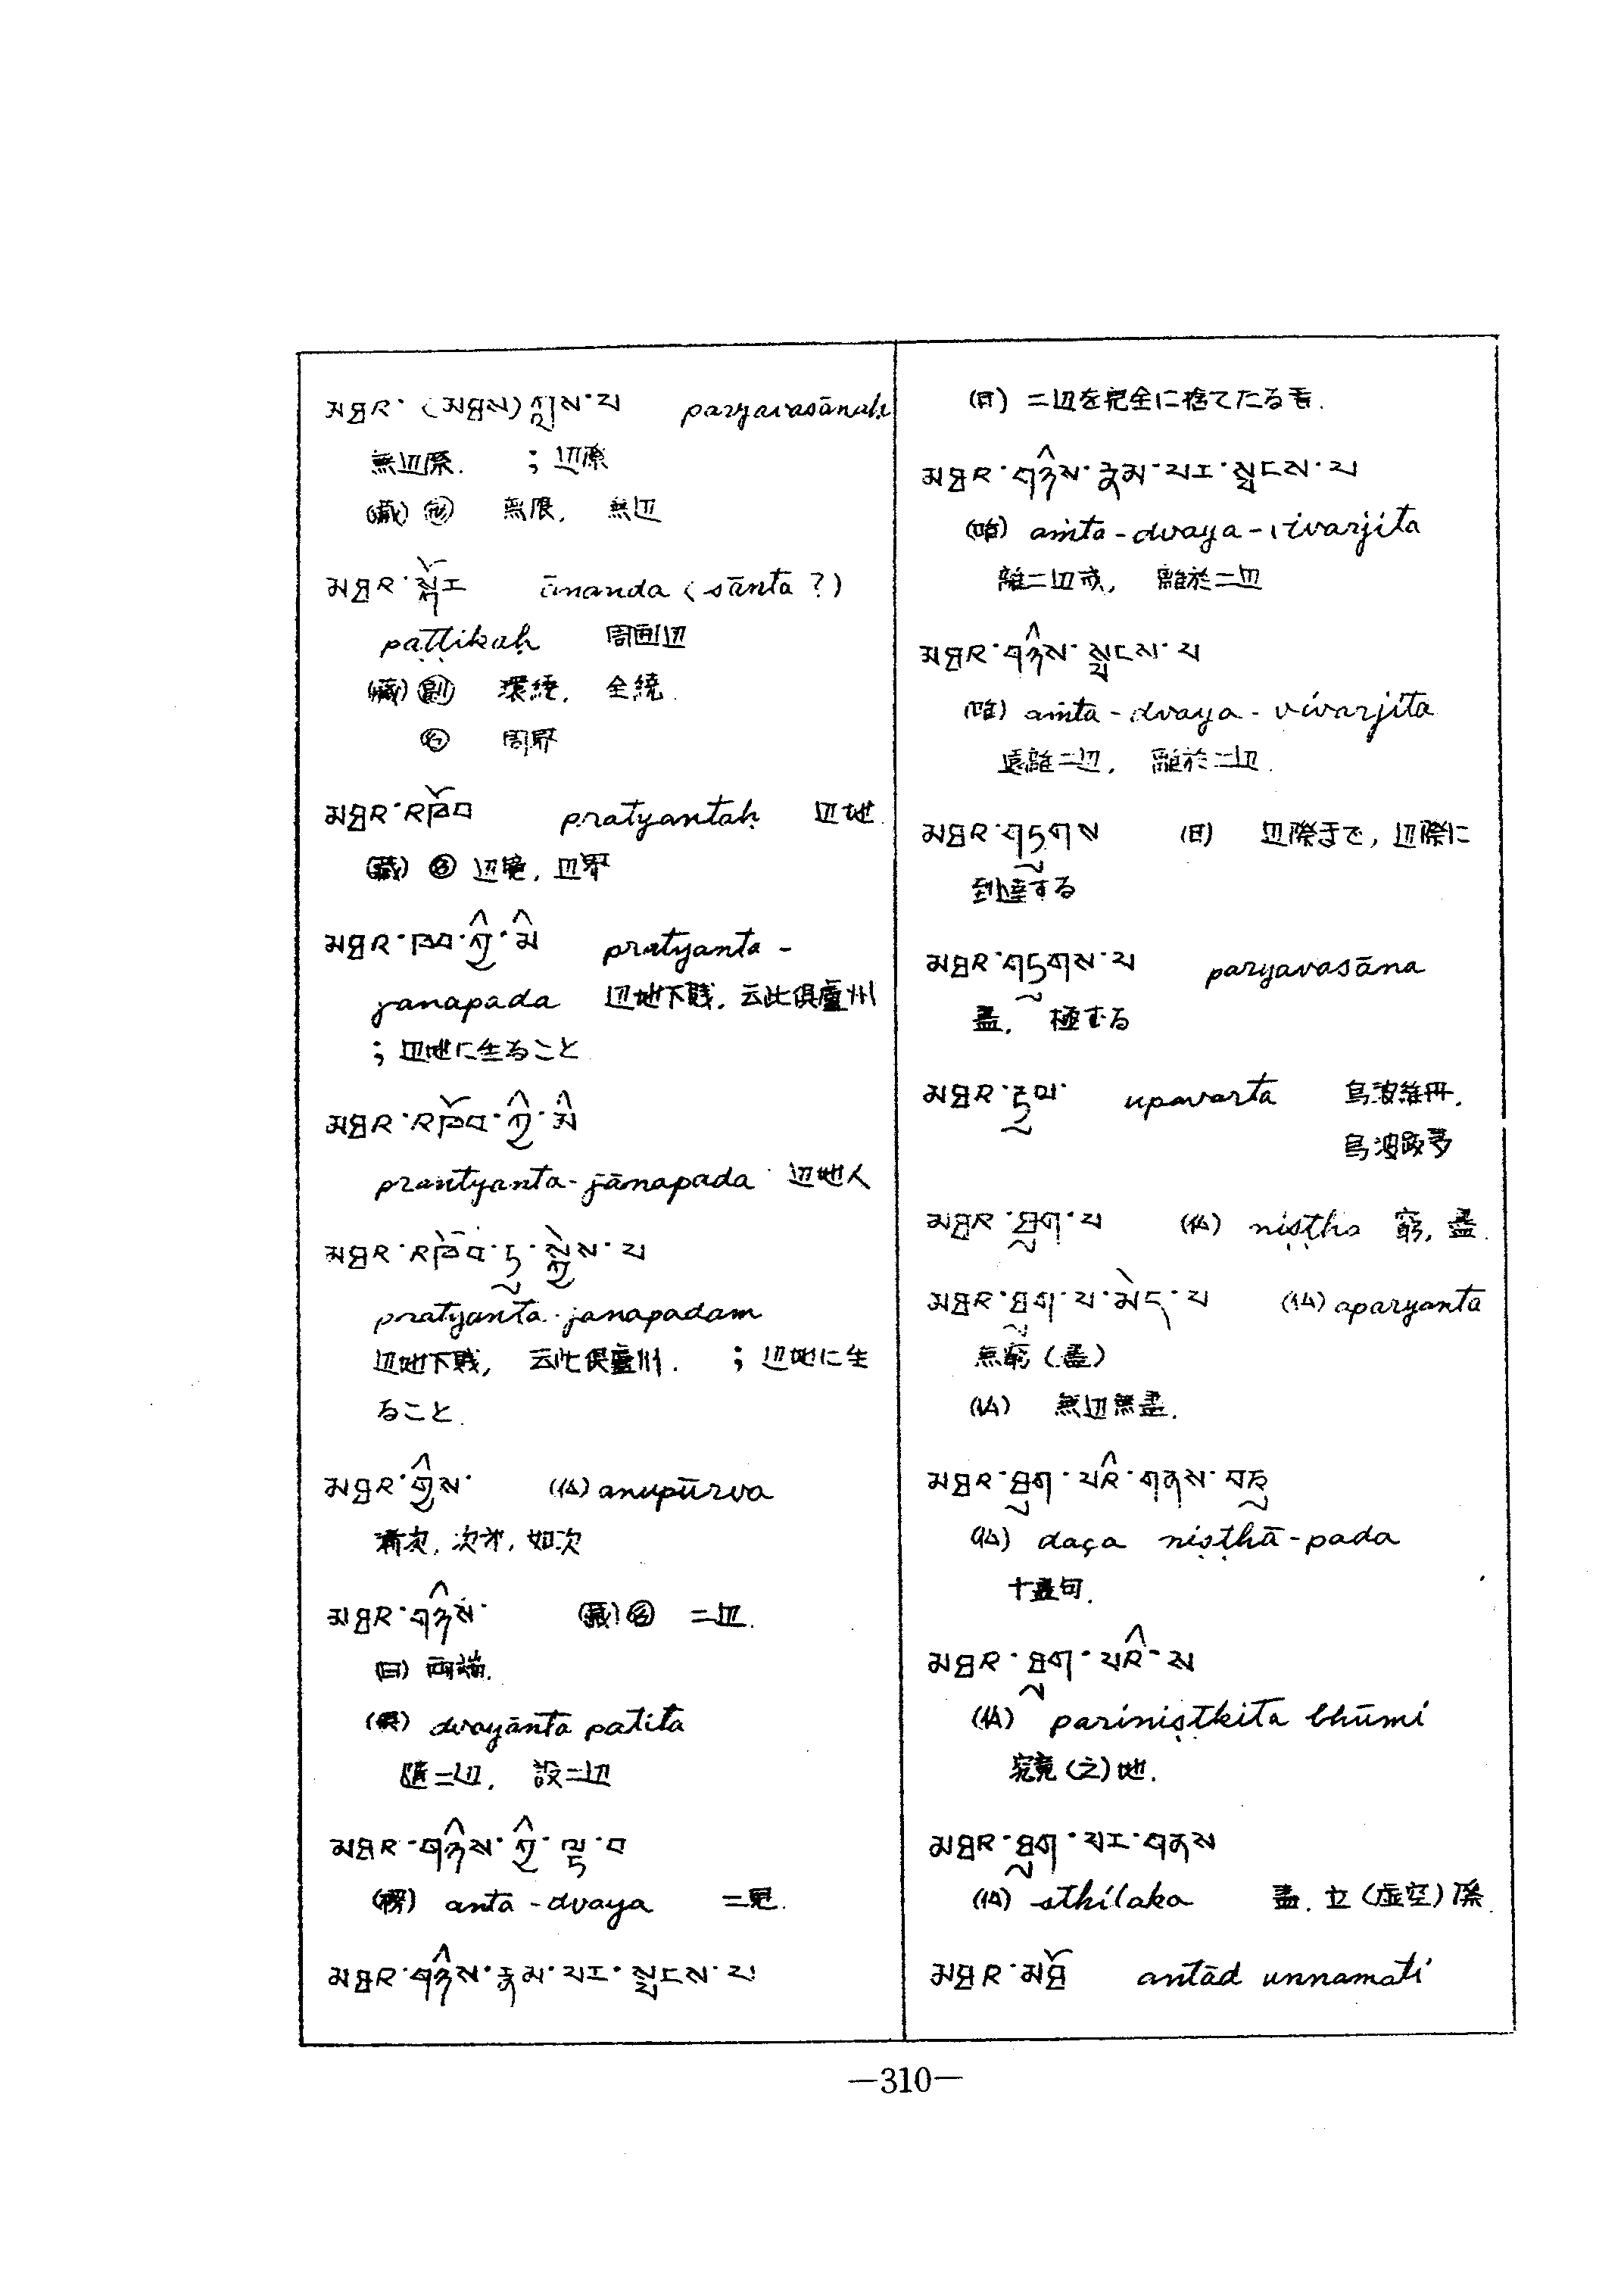 མཐའ་(མཐས)ཀླས་པ paryavasānaḥ
無辺際. ；辺際
(蔵) 無限, 無辺
མཐའ་སྐོར ānanda (sānta ?)
paṭṭikaḥ 周囲辺
(蔵)副 環繞, 全繞.
名 周界
མཐའ་འཁོབ pratyantaḥ 辺地.
(蔵)名 辺境, 辺界
མཐའ་ཁབ་ཀྱི་མི pratyanta-
janapada 辺地下賎, 云此俱廬州
；辺地に生ること
མཐའ་འཁོབ་ཀྱི་མི
prantyanta-jānapada 辺地人
མཐའ་འཁོབ་ཏུ་སྐྱེས་པ
pratyanta-janapadam
辺地下賎, 云此俱廬州. ；辺地に生
ること.
མཐའ་ཀྱིས་ (仏) anupūrva
漸次, 次才, 如次
མཐའ་གཉིས་ (蔵)名 二辺.
(日) 両端.
dvayānta patita
随二辺, 設二辺
མཐའ་གཉིས་ཀྱི་ལྟ་བ
anta-dvaya 二見.
མཐའ་གཉིས་རྣམ་པར་སྤངས་པ
(日) 二辺を完全に捨てたる者.
མཐའ་གཉིས་རྣམ་པར་སྤངས་པ
aṁta-dvaya-vivarjita
離二辺或, 離於二辺
མཐའ་གཉིས་སྤངས་པ
aṁta-dvaya-vivarjita
遠離二辺, 離於二辺.
མཐའ་གཏུགས (日) 辺際まで, 辺際に
到達する
མཐའ་གཏུགས་པ paryavasāna
盡, 極むる
མཐའ་དུལ་ upavarta 烏波維丹.
烏波跋多
མཐའ་ཐུག་པ (仏) niṣṭha 窮, 盡.
མཐའ་ཐུག་པ་མེད་པ (仏) aparyanta
無窮(盡)
(仏) 無辺無盡.
མཐའ་ཐུག་པའི་གནས་བཅུ
(仏) daça niṣṭhā-pada
十盡句.
མཐའ་ཐུག་པའི་ས
(仏) pariniṣṭkita bhūmi
究竟(之)地.
མཐའ་ཐུག་པར་གནས
(仏) sthilaka 盡, 立(虚空)際.
མཐའ་མཐོ antād unnamati
—310—